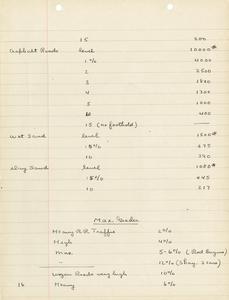 15 200
Asphalt Roads level 10000*
1% 4000
2 2500
3 1800
4 1300
5 1000
10 400
15 (no foothold)
Wet Sand level 1500*
15% 675
10 390
Dry Sand level 1000*
15% 445
10 217
Max. Grades
Heavy R.R. Traffic 2%
High 4%
Max 5-6% (Rod Engines)
" 12% (Shay, Stars)
Wagon Roads very high 10%
16 Heavy 6%